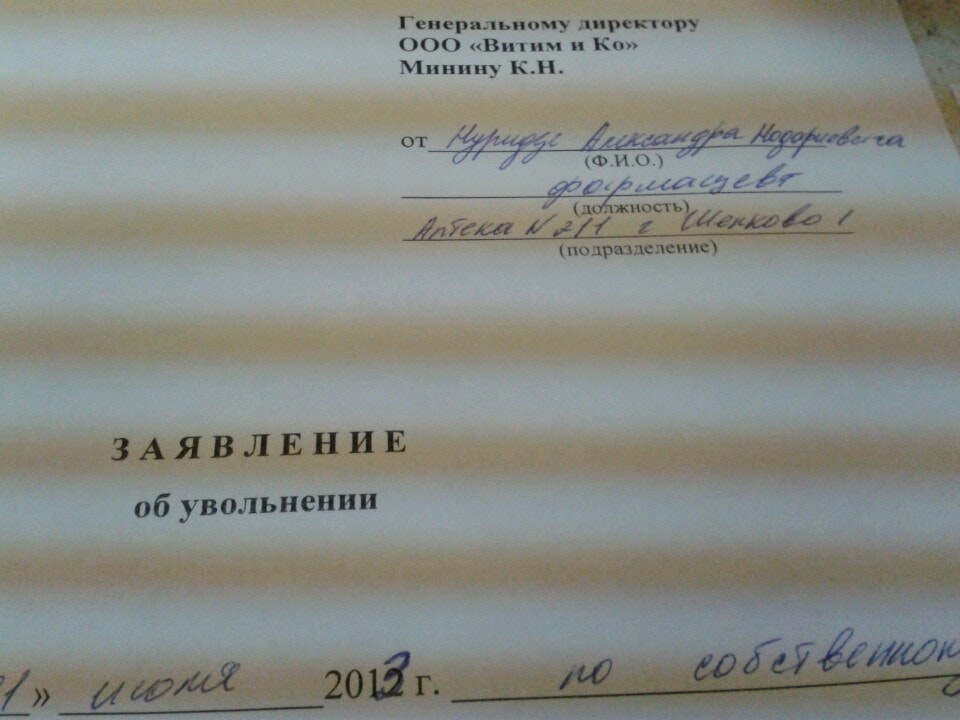 Генеральному директору
ООО «Витим и Ко»
Минину К.Н.
от Александра Нодариевича
(Ф.И.О.)
фармацевт
(должность)
Аптека № 211 г Щелково 1
(подразделение)
ЗАЯВЛЕНИЕ
об увольнении
1 » июля 2013 г. по собственном